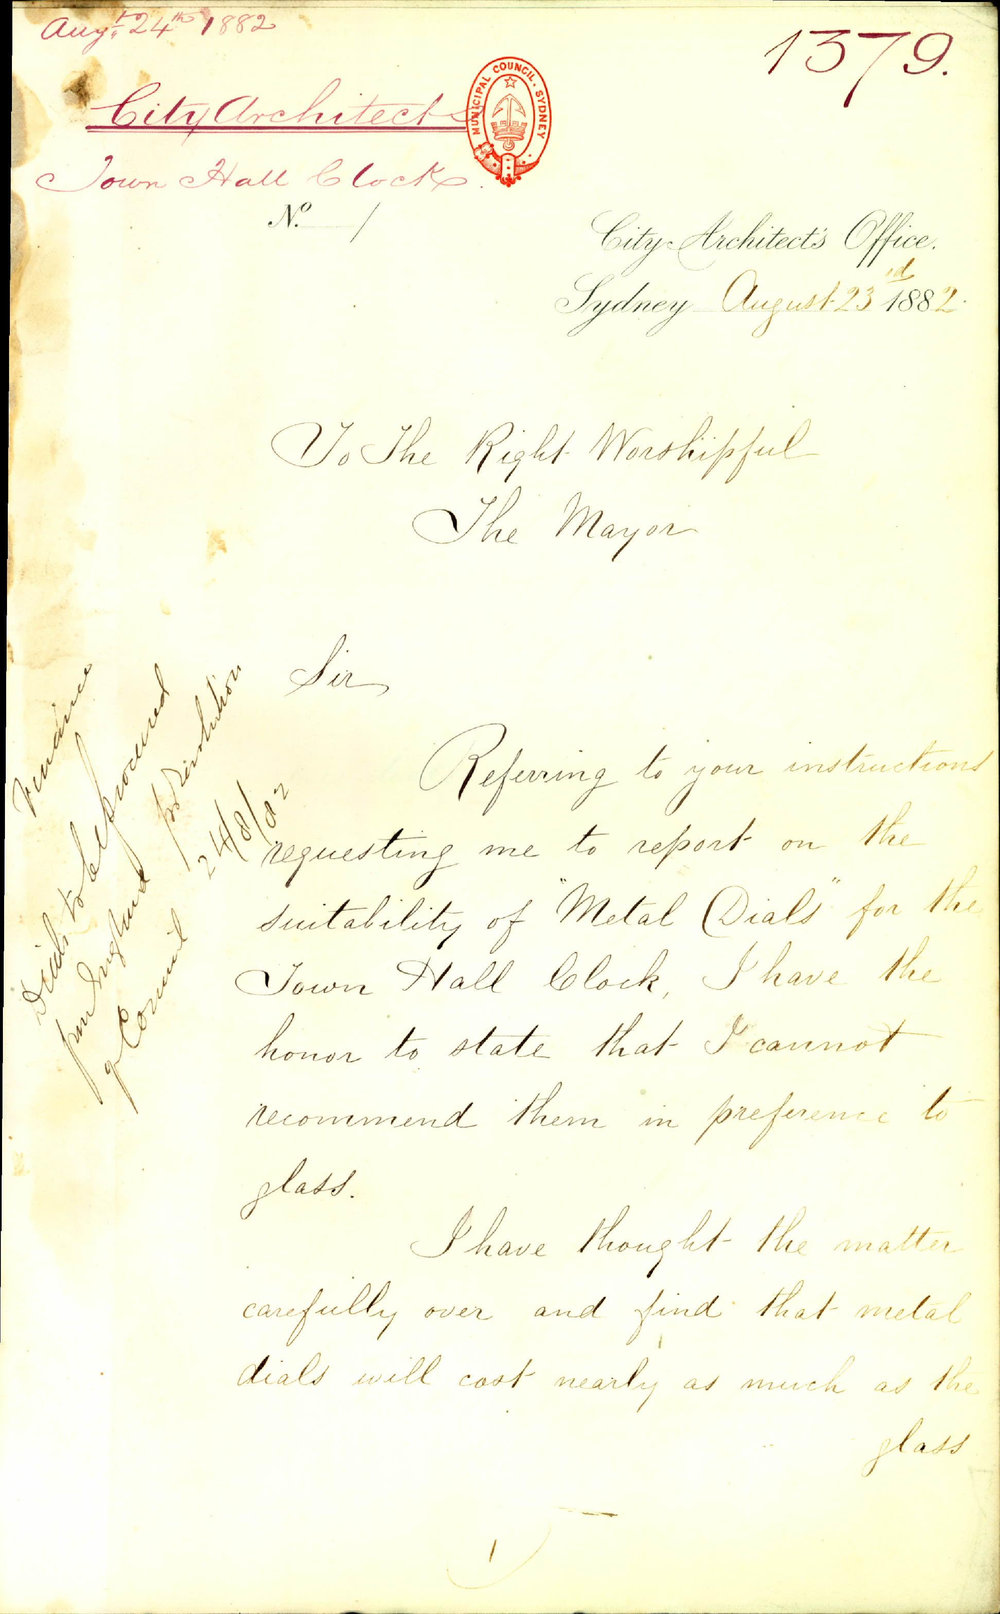 Augt. 24th 1882
1379.
City Architects
MUNICIPAL COUNCIL. SYDNEY
Town Hall Clock.
No. 1
City Architect's Office.
Sydney August 23rd 1882.
To The Right Worshipful
The Mayor
Sir
Referring to your instructions
requesting me to report on the
suitability of "Metal Dials" for the
Town Hall Clock, I have the
honor to state that I cannot
recommend them in preference to
glass.
I have thought the matter
carefully over and find that metal
dials will cost nearly as much as the
glass
Dials to be procured
from England pr Resolution
of Council 24/8/82
1